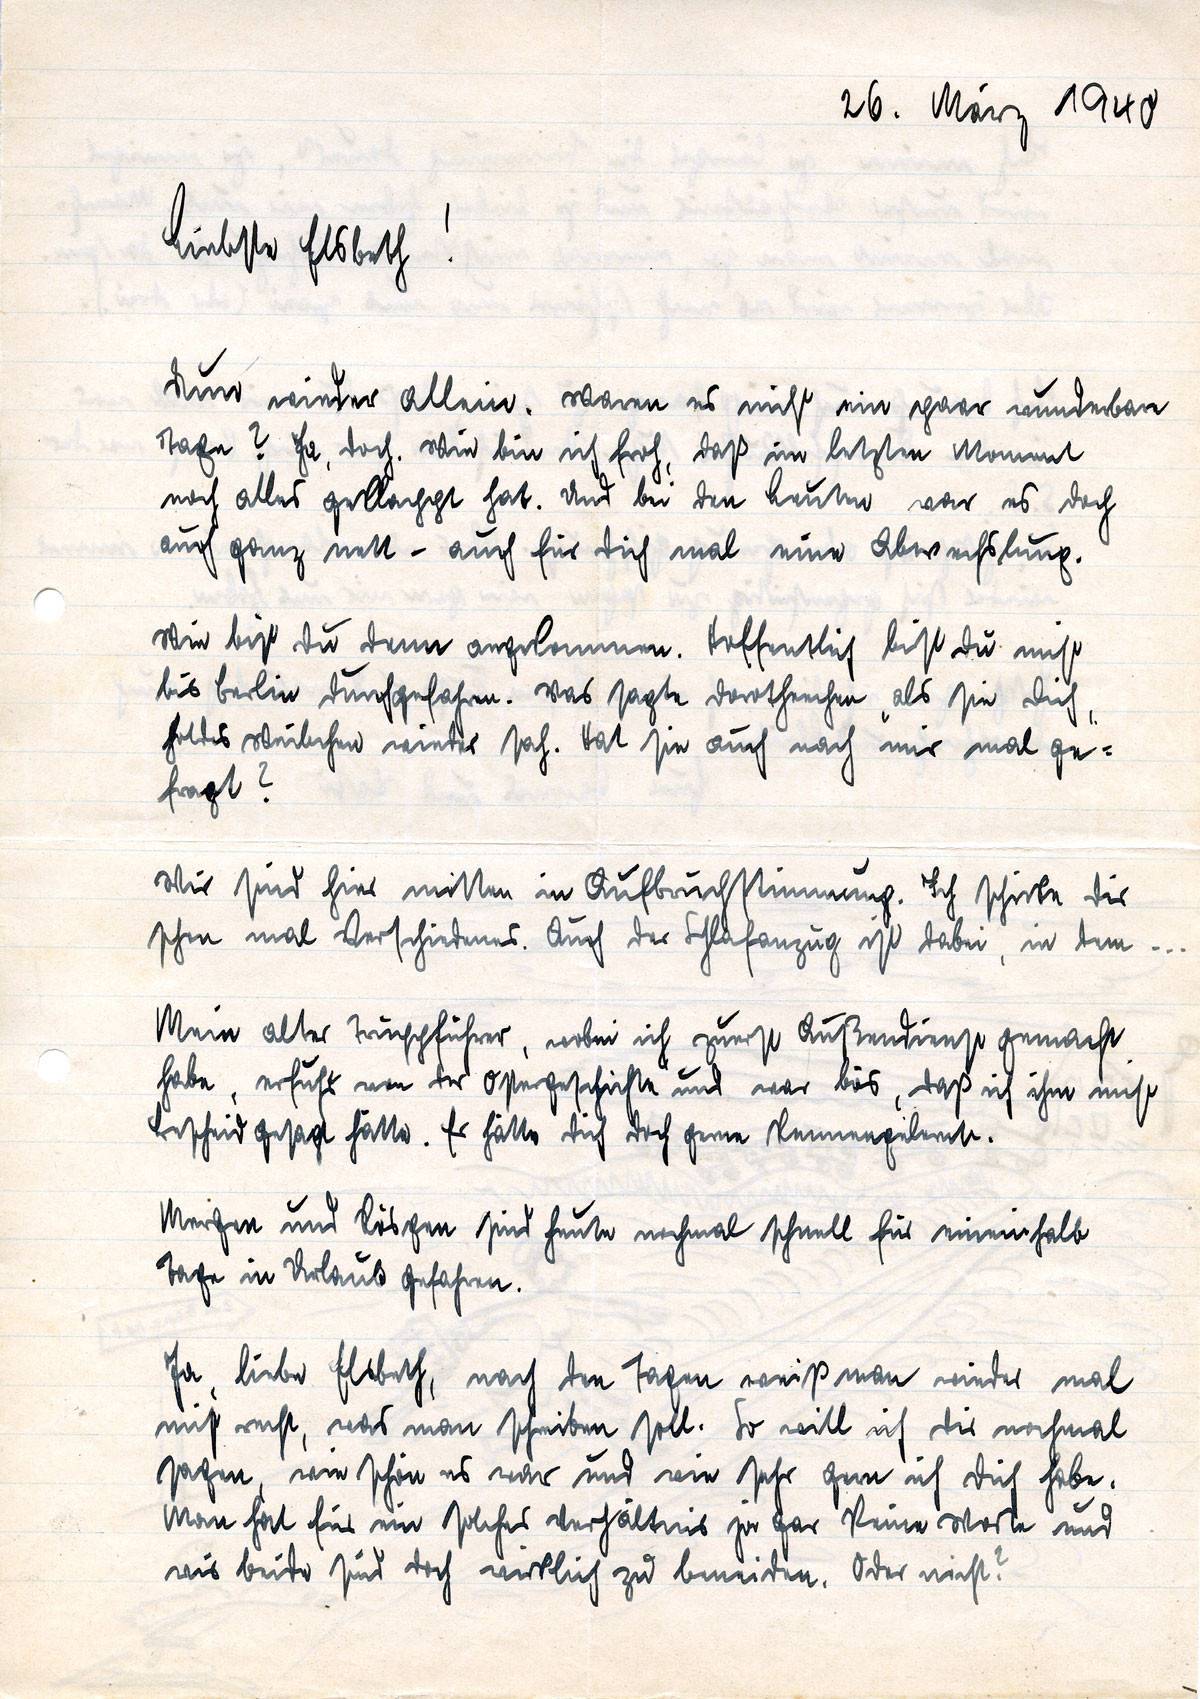 26. März 1940
Liebste Elsbeth!
Nun wieder allein. Waren es nicht ein paar wunderbare
Tage? Ja, doch. Wie bin ich froh, daß im letzten Moment
noch alles geklappt hat. Und bei den Leuten war es doch
auch ganz nett – auch für Dich mal eine Abwechslung.
Wie bist Du denn angekommen. Hoffentlich bist Du nicht
bis Berlin durchgefahren. Was sagte Dorotheechen, als sie Dich,
holdes Weibchen wieder sah. Hat sie auch nach mir mal ge=
fragt?
Wir sind hier mitten in Aufbruchstimmung. Ich schicke Dir
schon mal Verschiedenes. Auch der Schlafanzug ist dabei, in dem ...
Mein alter Truppführer, wobei ich zuerst Außendienst gemacht
habe, erfuhr von der "Ostergeschichte" und war bös, daß ich ihm nicht
Bescheid gesagt hätte. Er hätte Dich doch gerne kennengelernt.
und sind heute nochmal schnell für eineinhalb
Tage in Urlaub gefahren.
Ja, liebe Elsbeth, nach den Tagen weiß man wieder mal
nicht recht, was man schreiben soll. So will ich Dir nochmal
sagen, wie schön es war und wie sehr gern ich Dich habe.
Man hat für ein solches Verhältnis ja gar keine Worte und
wir beide sind doch wirklich zu beneiden. Oder nicht?